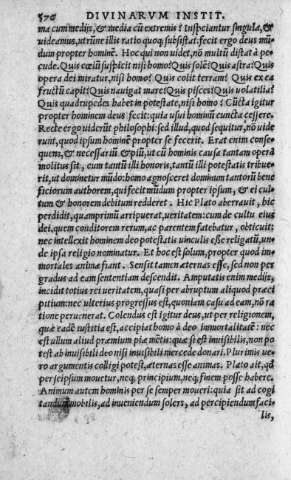 570 DIVINARUM INSTIT.
ma cum medijs, & media cũ extremis? inspiciantur singula, et
uideamus, utrũne illis ratio quoq; subsistat. fecit ergo deus mũ-
dum propter hominẽ. Hoc qui non uidet, nõ multũ distat à pe-
cude. Quis cœlũ suspicit nisi homo? Quis solẽ? Quis astra? Quis
opera dei miratur, nisi homo? Quis colit terram? Quis ex ea
fructũ capit? Quis nauigat mare? Quis pisces? Quis uolatilia?
Quis quadrupedes habet in potestate, nisi homo? Cũcta igitur
propter hominem deus fecit: quia usui hominũ cuncta cessere.
Recte ergo uiderũt philosophi: sed illud, quod sequitur, nõ uide
runt, quod ipsum hominẽ propter se fecerit. Erat enim conse-
quens, & necessariũ, & piũ, ut cũ hominis causa tantam opera
molitus sit, cum tantũ illi honoris, tantũ illi potestatis tribue-
rit, ut dominetur mũdo: homo agnosceret dominum tantorũ bene
ficiorum authorem, qui fecit mũdum propter ipsum, & ei cul-
tum & honorem debitum redderet. Hic Plato aberrauit, hic
perdidit, quam primũ arripuerat, ueritatem: cum de cultu eius
dei, quem conditorem rerum, ac parentem fatebatur, obticuit:
nec intellexit hominem deo pietatis uinculis esse religatũ, un-
de ipsa religio nominatur. Et hoc est solum, propter quod im-
mortales animæ fiant. Sensit tamen æternas esse, sed non per
gradus ad eam sententiam descendit. Amputatis enim medijs,
incidit totius rei ueritatem, quasi per abruptum aliquod præci
pitium: nec ulterius progressus est, quoniam casu ad eam, nõ ra
tione peruenerat. Colendus est igitur deus, ut per religionem,
quæ eadẽ iustitia est, accipiat homo à deo immortalitatẽ: nec
est ullum aliud præmium piæ mẽtis: quæ si est inuisibilis, non po
test ab inuisibili deo nisi inuisibili mercede donari. Plurimis ue-
ro argumentis colligi potest, æternas esse animas. Plato ait, qđ
per seipsum mouetur, neq; principium, neq; finem posse habere.
Animum autem hominis per se semper moueri: quia sit ad cogi
tandum mobilis, ad inueniendum solers, ad percipiendum faci-
lis,